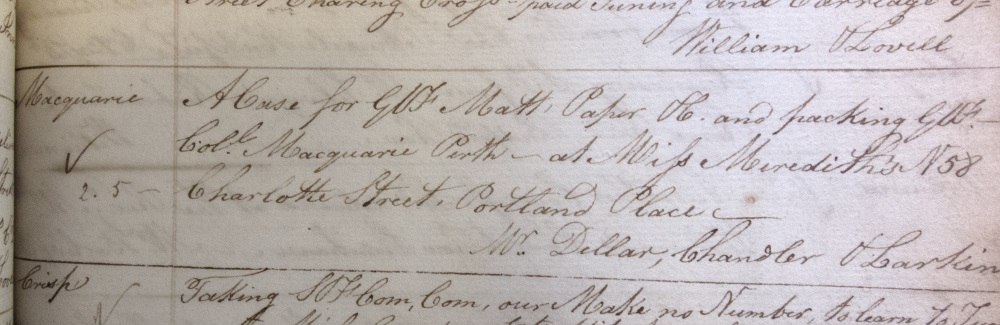 Street Charing Cross paid Tuning and Carriage
William & Lovell
Macquarie
A Case for GPF Matt, Paper &c. and packing GPF.
Col.l Macquarie Perth – at Miss Meredith's N 58
2. 5 –
Charlotte Street, Portland Place
Mr. Dellar, Chandler & Larkin
Crisp
Taking SPF Com, Com, our Make no Number, to learn